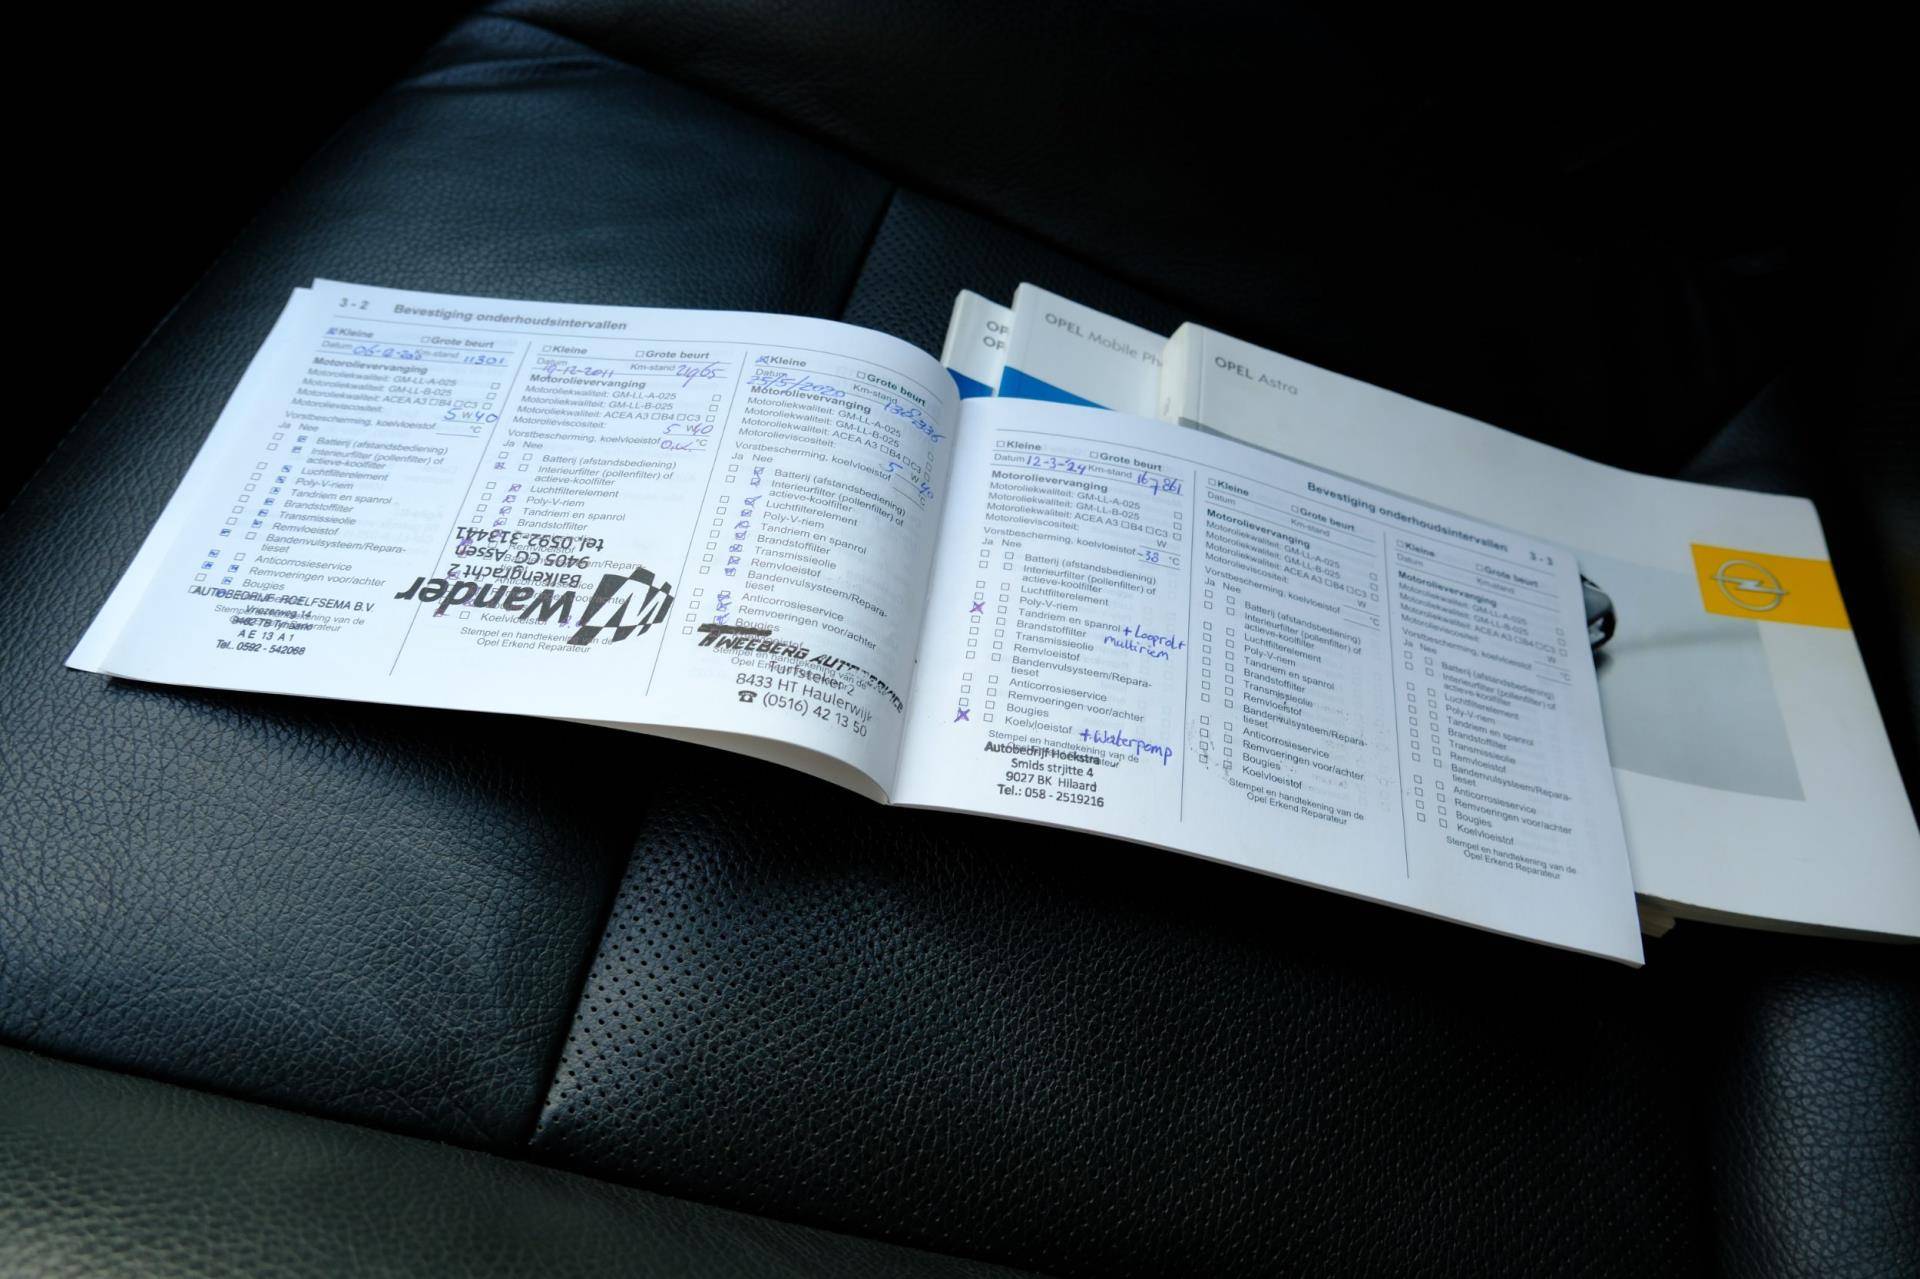 3 - 2 Bevestiging onderhoudsintervallen
Kleine Grote beurt
Datum Km-stand 11301
Motorolievervanging
Motoroliekwaliteit: GM-LL-A-025
Motoroliekwaliteit: GM-LL-B-025
Motoroliekwaliteit: ACEA A3 B4 C3
Motorolieviscositeit: 5 W 40
Vorstbescherming, koelvloeistof °C
Ja Nee
Batterij (afstandsbediening)
Interieurfilter (pollenfilter) of
actieve-koolfilter
Luchtfilterelement
Poly-V-riem
Tandriem en spanrol
Brandstoffilter
Transmissieolie
Remvloeistof
Bandenvulsysteem/Repara-
tieset
Anticorrosieservice
Remvoeringen voor/achter
Bougies
AUTOBEDRIJF ROELFSEMA B.V.
Vriezerweg 14
9482 TB Tynaarlo
A E 13 A 1
Tel. 0592 - 542068
Kleine Grote beurt
Datum 19-12-2011 Km-stand
Motorolievervanging
Motoroliekwaliteit: GM-LL-A-025
Motoroliekwaliteit: GM-LL-B-025
Motoroliekwaliteit: ACEA A3 B4 C3
Motorolieviscositeit: 5 W 40
Vorstbescherming, koelvloeistof °C
Ja Nee
Batterij (afstandsbediening)
Interieurfilter (pollenfilter) of
actieve-koolfilter
Luchtfilterelement
Poly-V-riem
Tandriem en spanrol
Brandstoffilter
Wander
Balkengracht 2
9405 CC Assen
tel 0592 313441
Koelvloeistof
Stempel en handtekening van de
Opel Erkend Reparateur
Kleine Grote beurt
Datum 25/5/2020 Km-stand 138336
Motorolievervanging
Motoroliekwaliteit: GM-LL-A-025
Motoroliekwaliteit: GM-LL-B-025
Motoroliekwaliteit: ACEA A3 B4 C3
Motorolieviscositeit: 5 W 40
Vorstbescherming, koelvloeistof °C
Ja Nee
Batterij (afstandsbediening)
Interieurfilter (pollenfilter) of
actieve-koolfilter
Luchtfilterelement
Poly-V-riem
Tandriem en spanrol
Brandstoffilter
Transmissieolie
Remvloeistof
Bandenvulsysteem/Repara-
tieset
Anticorrosieservice
Remvoeringen voor/achter
Bougies
TWEEBERG AUTOSERVICE
Turfsteker 2
8433 HT Haulerwijk
☎ (0516) 42 13 50
Bevestiging onderhoudsintervallen 3 - 3
Kleine Grote beurt
Datum 12-3-'24 Km-stand 167861
Motorolievervanging
Motoroliekwaliteit: GM-LL-A-025
Motoroliekwaliteit: GM-LL-B-025
Motoroliekwaliteit: ACEA A3 B4 C3
Motorolieviscositeit: W
Vorstbescherming, koelvloeistof -38 °C
Ja Nee
Batterij (afstandsbediening)
Interieurfilter (pollenfilter) of
actieve-koolfilter
Luchtfilterelement
Poly-V-riem
Tandriem en spanrol + Looprol +
multiriem
Brandstoffilter
Transmissieolie
Remvloeistof
Bandenvulsysteem/Repara-
tieset
Anticorrosieservice
Remvoeringen voor/achter
Bougies
Koelvloeistof + Waterpomp
Stempel en handtekening van de
Autobedrijf Hoekstra
Smids strjitte 4
9027 BK Hilaard
Tel.: 058 - 2519216
Kleine Grote beurt
Datum Km-stand
Motorolievervanging
Motoroliekwaliteit: GM-LL-A-025
Motoroliekwaliteit: GM-LL-B-025
Motoroliekwaliteit: ACEA A3 B4 C3
Motorolieviscositeit: W
Vorstbescherming, koelvloeistof °C
Ja Nee
Batterij (afstandsbediening)
Interieurfilter (pollenfilter) of
actieve-koolfilter
Luchtfilterelement
Poly-V-riem
Tandriem en spanrol
Brandstoffilter
Transmissieolie
Remvloeistof
Bandenvulsysteem/Repara-
tieset
Anticorrosieservice
Remvoeringen voor/achter
Bougies
Koelvloeistof
Stempel en handtekening van de
Opel Erkend Reparateur
Kleine Grote beurt
Datum Km-stand
Motorolievervanging
Motoroliekwaliteit: GM-LL-A-025
Motoroliekwaliteit: GM-LL-B-025
Motoroliekwaliteit: ACEA A3 B4 C3
Motorolieviscositeit: W
Vorstbescherming, koelvloeistof °C
Ja Nee
Batterij (afstandsbediening)
Interieurfilter (pollenfilter) of
actieve-koolfilter
Luchtfilterelement
Poly-V-riem
Tandriem en spanrol
Brandstoffilter
Transmissieolie
Remvloeistof
Bandenvulsysteem/Repara-
tieset
Anticorrosieservice
Remvoeringen voor/achter
Bougies
Koelvloeistof
Stempel en handtekening van de
Opel Erkend Reparateur
OPEL Mobile
OPEL Astra